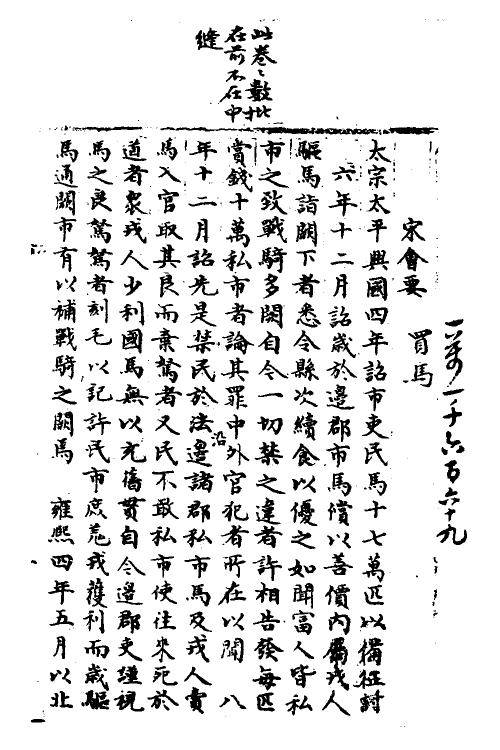 此卷之數批
在前不在中
縫
一萬一千六百六十九
宋會要
買馬
太宗太平興國四年詔市吏民馬十七萬匹以備征討
六年十二月詔歲於邊郡市馬償以善價內屬戎人
驅馬詣闕下者悉令縣次續食以優之如聞富人皆私
市之致戰騎多闕自今一切禁之違者許相告發每匹
賞錢十萬私市者論其罪中外官犯者所在以聞 八
年十二月詔先是禁民於法邊諸郡私市馬及戎人賣
沿
馬入官取其良而棄駑者又民不敢私市使往來死於
道者衆戎人少利國馬無以充舊貫自今邊郡吏謹視
馬之良駑駑者刻毛以記許民市庶羌戎獲利而歲驅
馬通闕市有以補戰騎之闕馬 雍熙四年五月以北